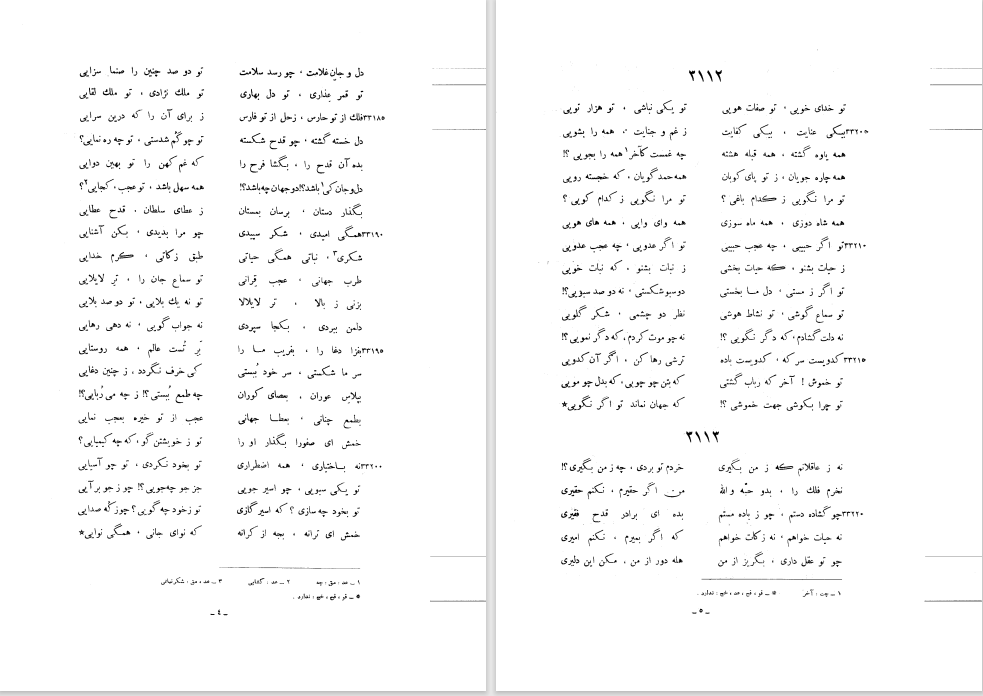 دل و جان غلامت ، چو رسد سلامت تو دو صد چنین را صنما سزایی
تو قمر عذاری ، تو دل بهاری تو ملك نژادی ، تو ملك لقایی
۳۳۱۸۵ فلك از تو حارس ، زحل از تو فارس ز برای آن را که درین سرایی
دل خسته گشته ، چو قدح شکسته تو چو گم شدستی ، تو چه ره نمایی؟
بده آن قدح را ، بگشا فرح را که غم کهن را تو بهین دوایی
دل و جان کی۱ باشد؟! دو جهان چه باشد؟! همه سهل باشد ، تو عجب ، کجایی۲؟
بگذار دستان ، برسان بمستان ز عطای سلطان ، قدح عطایی
۳۳۱۹۰ همگی امیدی ، شکر سپیدی چو مرا بدیدی ، بکن آشنایی
شکری۳ ، نباتی همگی حیاتی طبق زکاتی ، کرم خدایی
طرب جهانی ، عجب قرانی تو سماع جان را ، تر لایلایی
بزنی ز بالا ، تر لایلالا تو نه یك بلایی ، تو دو صد بلایی
دلمن ببردی ، بکجا سپردی نه جواب گویی ، نه دهی رهایی
۳۳۱۹۵ بفزا دغا را ، بفریب ما را بر تست عالم ، همه روستایی
سر ما شکستی ، سر خود ببستی که خرف نگردد ، ز چنین دغایی
بپلاس عوران ، بعصای کوران چه طمع ببستی؟! ز چه می ربایی؟!
بطمع چنانی ، بعطا جهانی عجب از تو خیره بعجب نمایی
خمش ای صفورا بگذار او را تو ز خویشتن گو ، که چه کیمیایی؟
۳۳۲۰۰ نه باختیاری ، همه اضطراری تو بخود نگردی ، تو چو آسیایی
تو یکی سبویی ، چو اسیر جویی جز جو چه جویی؟! چو ز جو برآیی
تو بخود چه سازی ؟ که اسیر گازی تو ز خود چه گویی؟ چو ز که صدایی
خمش ای ترانه ، بجه از کرانه که نوای جانی ، همگی نوایی*
۱ ـ عد ، مق : چه ۲ ـ عد : کشایی ۳ ـ عد ، مق : شکر نباتی
* ـ قو ، قح ، خج : ندارد .
ـ ٤ ـ
۳۱۱۲
تو خدای خویی ، تو صفات هویی تو یکی نباشی ، تو هزار تویی
۳۳۲۰۵ بیکی عنایت ، بیکی کفایت ز غم و جنایت ، همه را بشویی
همه یاوه گشته ، همه قبله هشته چه غمست کآخر۱ همه را بجویی ؟!
همه چاره جویان ، ز تو پای کوبان همه حمد گویان ، که خجسته رویی
تو مرا نگویی ز کدام باغی ؟ تو مرا نگویی ز کدام کویی ؟
همه شاه دوزی ، همه ماه سوزی همه وای وایی ، همه های هویی
۳۳۲۱۰ تو اگر حبیبی ، چه عجب حبیبی تو اگر عدویی ، چه عجب عدویی
ز حیات بشنو ، که حیات بخشی ز نبات بشنو ، که نبات خویی
تو اگر ز مستی ، دل ما بخستی دو سبو شکستی ، نه دو صد سبویی؟!
تو سماع گوشی ، تو نشاط هوشی نظر دو چشمی ، شکر گلویی
نه دلت گشادم، که دگر نگویی ؟! نه چو موت کردم، که دگر نمویی ؟!
۳۳۲۱۵ کدویست سر که ، کدویست باده ترشی رها کن ، اگر آن کدویی
تو خموش ! آخر که رباب گشتی که بتن چو چوبی ، که بدل چو مویی
تو چرا بکوشی جهت خموشی ؟! که جهان نماند تو اگر نگویی*
۳۱۱۳
نه ز عاقلانم که ز من بگیری خردم تو بردی ، چه ز من بگیری ؟!
نخرم فلك را ، بدو حبّه و الله من اگر حقیرم ، نکنم حقیری
۳۳۲۲۰ چو گشاده دستم ، چو ز باده مستم بده ای برادر قدح فقیری
نه حیات خواهم ، نه زکات خواهم که اگر بمیرم ، نکنم امیری
چو تو عقل داری ، بگریز از من هله دور از من ، مکن این دلیری
۱ ـ چت : آخر * ـ قو ، قح ، عد ، خج : ندارد .
ـ ٥ ـ